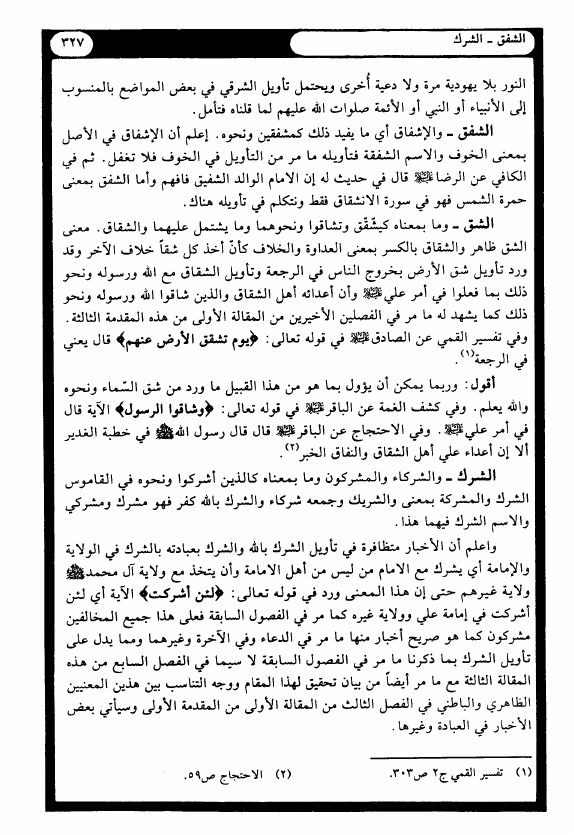 الشفق - الشرك
٣٢٧
النور بلا يهودية مرة ولا دعية أُخرى ويحتمل تأويل الشرقي في بعض المواضع بالمنسوب
إلى الأنبياء أو النبي أو الأئمة صلوات الله عليهم لما قلناه فتأمل.
الشفق - والإشفاق أي ما يفيد ذلك كمشفقين ونحوه. إعلم أن الإشفاق في الأصل
بمعنى الخوف والاسم الشفقة فتأويله ما مر من التأويل في الخوف فلا تغفل. ثم في
الكافي عن الرضا ﷺ قال في حديث له إن الامام الوالد الشفيق فافهم وأما الشفق بمعنى
حمرة الشمس فهو في سورة الانشقاق فقط ونتكلم في تأويله هناك.
الشق - وما بمعناه كيشّقّق وتشاقوا ونحوهما وما يشتمل عليهما والشقاق. معنى
الشق ظاهر والشقاق بالكسر بمعنى العداوة والخلاف كأنّ أخذ كل شقاً خلاف الآخر وقد
ورد تأويل شق الأرض بخروج الناس في الرجعة وتأويل الشقاق مع الله ورسوله ونحو
ذلك بما فعلوا في أمر علي ﷺ وأن أعدائه أهل الشقاق والذين شاقوا الله ورسوله ونحو
ذلك كما يشهد له ما مر في الفصلين الأخيرين من المقالة الأولى من هذه المقدمة الثالثة.
وفي تفسير القمي عن الصادق ﷺ في قوله تعالى: ﴿يوم تشقق الأرض عنهم﴾ قال يعني
في الرجعة(١).
أقول: وربما يمكن أن يؤول بما هو من هذا القبيل ما ورد من شق السّماء ونحوه
والله يعلم. وفي كشف الغمة عن الباقر ﷺ في قوله تعالى: ﴿وشاقوا الرسول﴾ الآية قال
في أمر علي ﷺ. وفي الاحتجاج عن الباقر ﷺ قال قال رسول الله ﷺ في خطبة الغدير
ألا إن أعداء علي أهل الشقاق والنفاق الخبر(٢).
الشرك - والشركاء والمشركون وما بمعناه كالذين أشركوا ونحوه في القاموس
الشرك والمشركة بمعنى والشريك وجمعه شركاء والشرك بالله كفر فهو مشرك ومشركي
والاسم الشرك فيهما هذا.
واعلم أن الأخبار متظافرة في تأويل الشرك بالله والشرك بعبادته بالشرك في الولاية
والإمامة أي يشرك مع الامام من ليس من أهل الامامة وأن يتخذ مع ولاية آل محمد ﷺ
ولاية غيرهم حتى إن هذا المعنى ورد في قوله تعالى: ﴿لئن أشركت﴾ الآية أي لئن
أشركت في إمامة علي وولاية غيره كما مر في الفصول السابقة فعلى هذا جميع المخالفين
مشركون كما هو صريح أخبار منها ما مر في الدعاء وفي الآخرة وغيرهما ومما يدل على
تأويل الشرك بما ذكرنا ما مر في الفصول السابقة لا سيما في الفصل السابع من هذه
المقالة الثالثة مع ما مر أيضاً من بيان تحقيق لهذا المقام ووجه التناسب بين هذين المعنيين
الظاهري والباطني في الفصل الثالث من المقالة الأولى من المقدمة الأولى وسيأتي بعض
الأخبار في العبادة وغيرها.
(١) تفسير القمي ج٢ ص٣٠٣.
(٢) الاحتجاج ص٥٩.